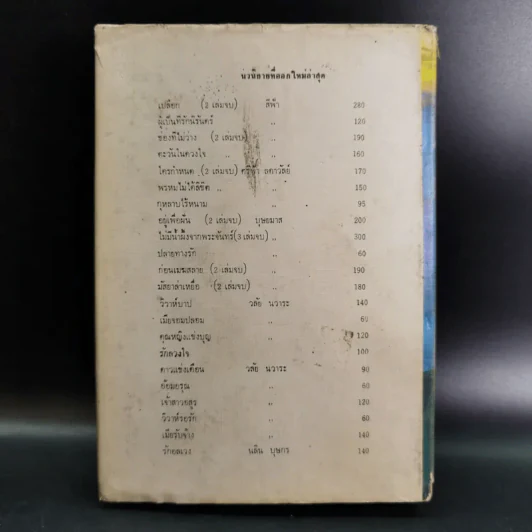 นวนิยายที่ออกใหม่ล่าสุด
เปลือก (2 เล่มจบ) สีฟ้า 280
ผู้เป็นที่รักนิรันดร์ ,, 120
ช่องที่ไม่ว่าง (2 เล่มจบ) ,, 190
ตะวันในดวงใจ ,, ,, 160
ใครกำหนด (2 เล่มจบ) ศรีฟ้า ลดาวัลย์ 170
พรหมไม่ได้ลิขิต ,, ,, 150
กุหลาบไร้หนาม ,, 95
อยู่เพื่อฝัน (2 เล่มจบ) บุษยมาส 200
ไม่มีน้ำผึ้งจากพระจันทร์(3 เล่มจบ) ,, 300
ปลายทางรัก ,, 60
ก่อนเมฆสลาย (2 เล่มจบ) ,, 190
มัสยาล่าเหยื่อ (2 เล่มจบ) ,, 180
วิวาห์บาป วลัย นวาระ 140
เมียจอมปลอม ,, 60
คุณหญิงแข่งบุญ ,, 120
รักลวงใจ 100
ดาวแข่งเดือน วลัย นวาระ 90
,, 60
เจ้าสาวอสูร ,, 120
วิวาห์รอรัก ,, 60
เมียรับจ้าง ,, 140
นลิน บุษกร 140